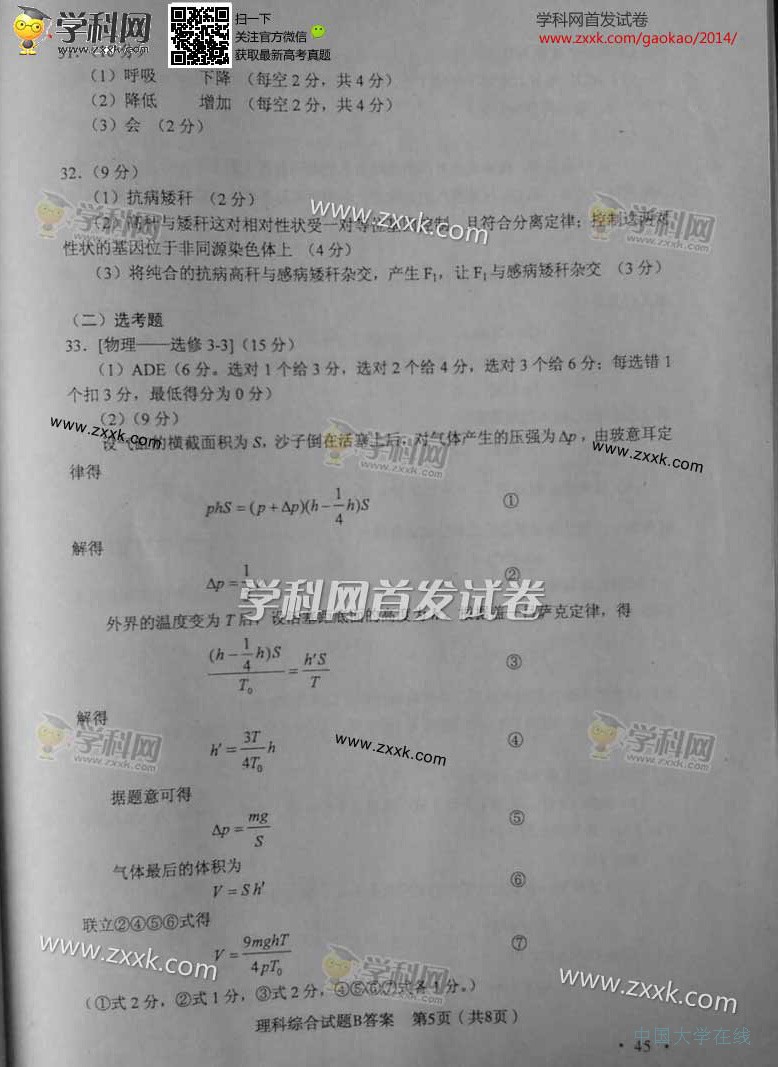 学科网 扫一下 学科网首发试卷
www.zxxk.com 关注官方微信 www.zxxk.com/gaokao/2014/
获取最新高考真题
(1) 呼吸 下降 (每空2分，共4分)
(2) 降低 增加 (每空2分，共4分)
(3) 会 (2分)
32．(9分)
(1) 抗病矮秆 (2分)
www.zxxk.com
(2) 高秆与矮秆这对相对性状受一对等位基因控制，且符合分离定律；控制这两对
性状的基因位于非同源染色体上 (4分)
(3) 将纯合的抗病高秆与感病矮秆杂交，产生F₁，让F₁与感病矮秆杂交 (3分)
(二) 选考题
33．[物理——选修3-3] (15分)
(1) ADE (6分。选对1个给3分，选对2个给4分，选对3个给6分；每选错1
个扣3分，最低得分为0分)
(2) (9分)
www.zxxk.com
设气缸的横截面积为S，沙子倒在活塞上后，对气体产生的压强为Δp，由玻意耳定
www.zxxk.com
律得
phS = (p + Δp)(h − 1/4 h)S ①
解得
Δp = 1/ ②
学科网首发试卷
外界的温度变为T后，设活塞距底面的高度 萨克定律，得
(h − 1/4 h)S / T₀ = h′S / T ③
解得
h′ = 3T/4T₀ h ④
www.zxxk.com
据题意可得
Δp = mg/S ⑤
气体最后的体积为
V = Sh′ ⑥
联立②④⑤⑥式得
www.zxxk.com
V = 9mghT/4pT₀ ⑦
www.zxxk.com
(①式2分，②式1分，③式2分，④⑤⑥⑦式各1分。)
理科综合试题B答案 第5页 (共8页)
中国大学在线
· 45 ·